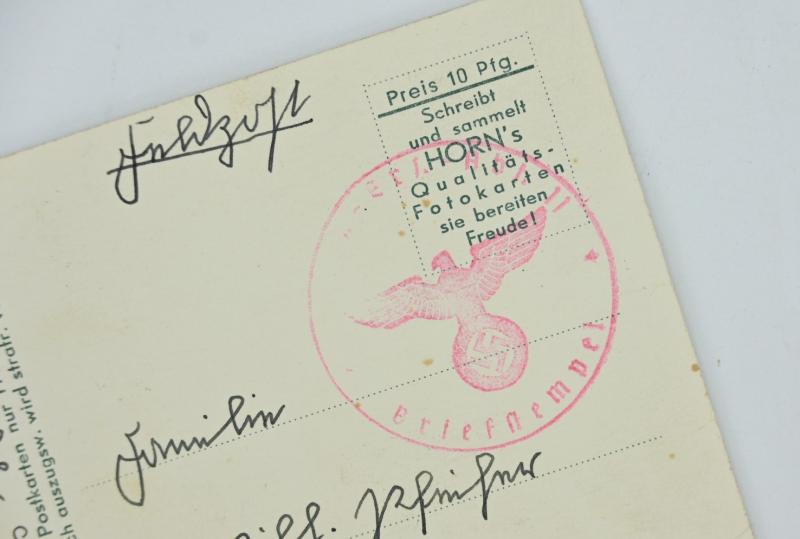 Feldpost
Preis 10 Pfg.
Schreibt
und sammelt
HORN's
Qualitäts-
Fotokarten
sie bereiten
Freude!
Briefstempel
Familie
Postkarten nur
auszugsw. wird strafr.